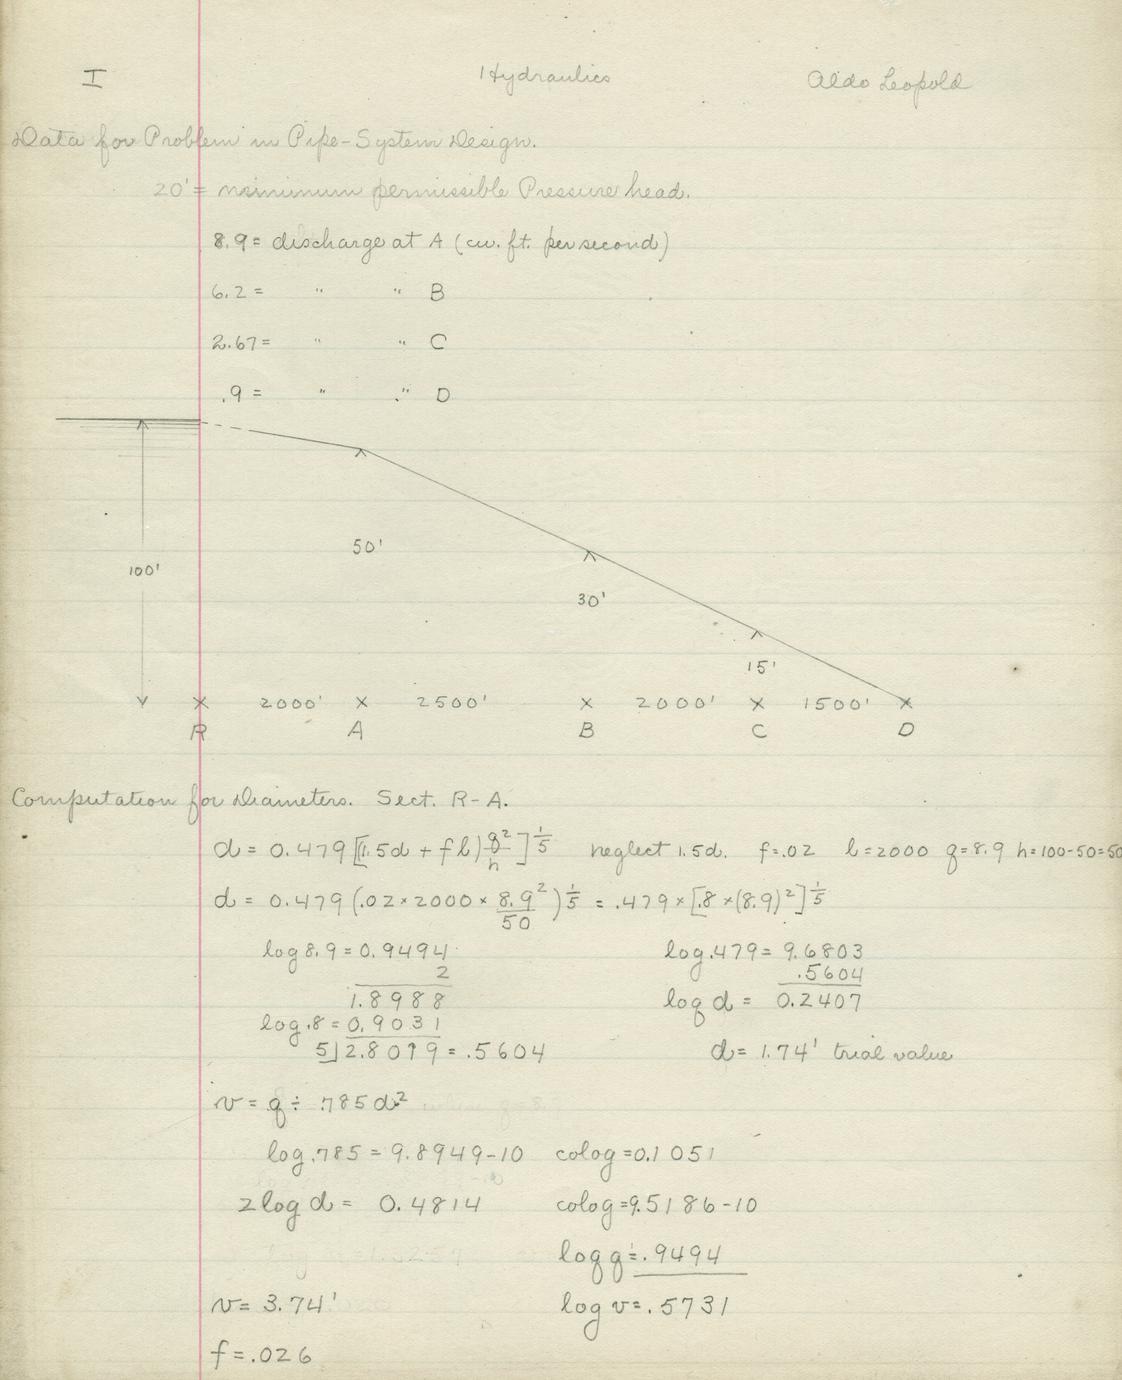 I Hydraulics Aldo Leopold
Data for Problem in Pipe-System Design.
20' = minimum permissible Pressure head.
8.9 = discharge at A (cu. ft. per second)
6.2 = " " B
2.67 = " " C
.9 = " " D
100'
50'
30'
15'
2000' 2500' 2000' 1500'
R A B C D
Computation for Diameters. Sect. R-A.
d = 0.479 [(1.5d + fl) q²/h]^1/5 neglect 1.5d. f=.02 l=2000 q=8.9 h=100-50=50
d = 0.479 (.02 × 2000 × 8.9²/50)^1/5 = .479 × [.8 × (8.9)²]^1/5
log 8.9 = 0.9494 log .479 = 9.6803
2 .5604
1.8988 log d = 0.2407
log .8 = 0.9031
5)2.8019 = .5604 d = 1.74' trial value
v = q ÷ .785d²
log .785 = 9.8949-10 colog = 0.1051
2 log d = 0.4814 colog = 9.5186-10
log q = .9494
v = 3.74' log v = .5731
f = .026